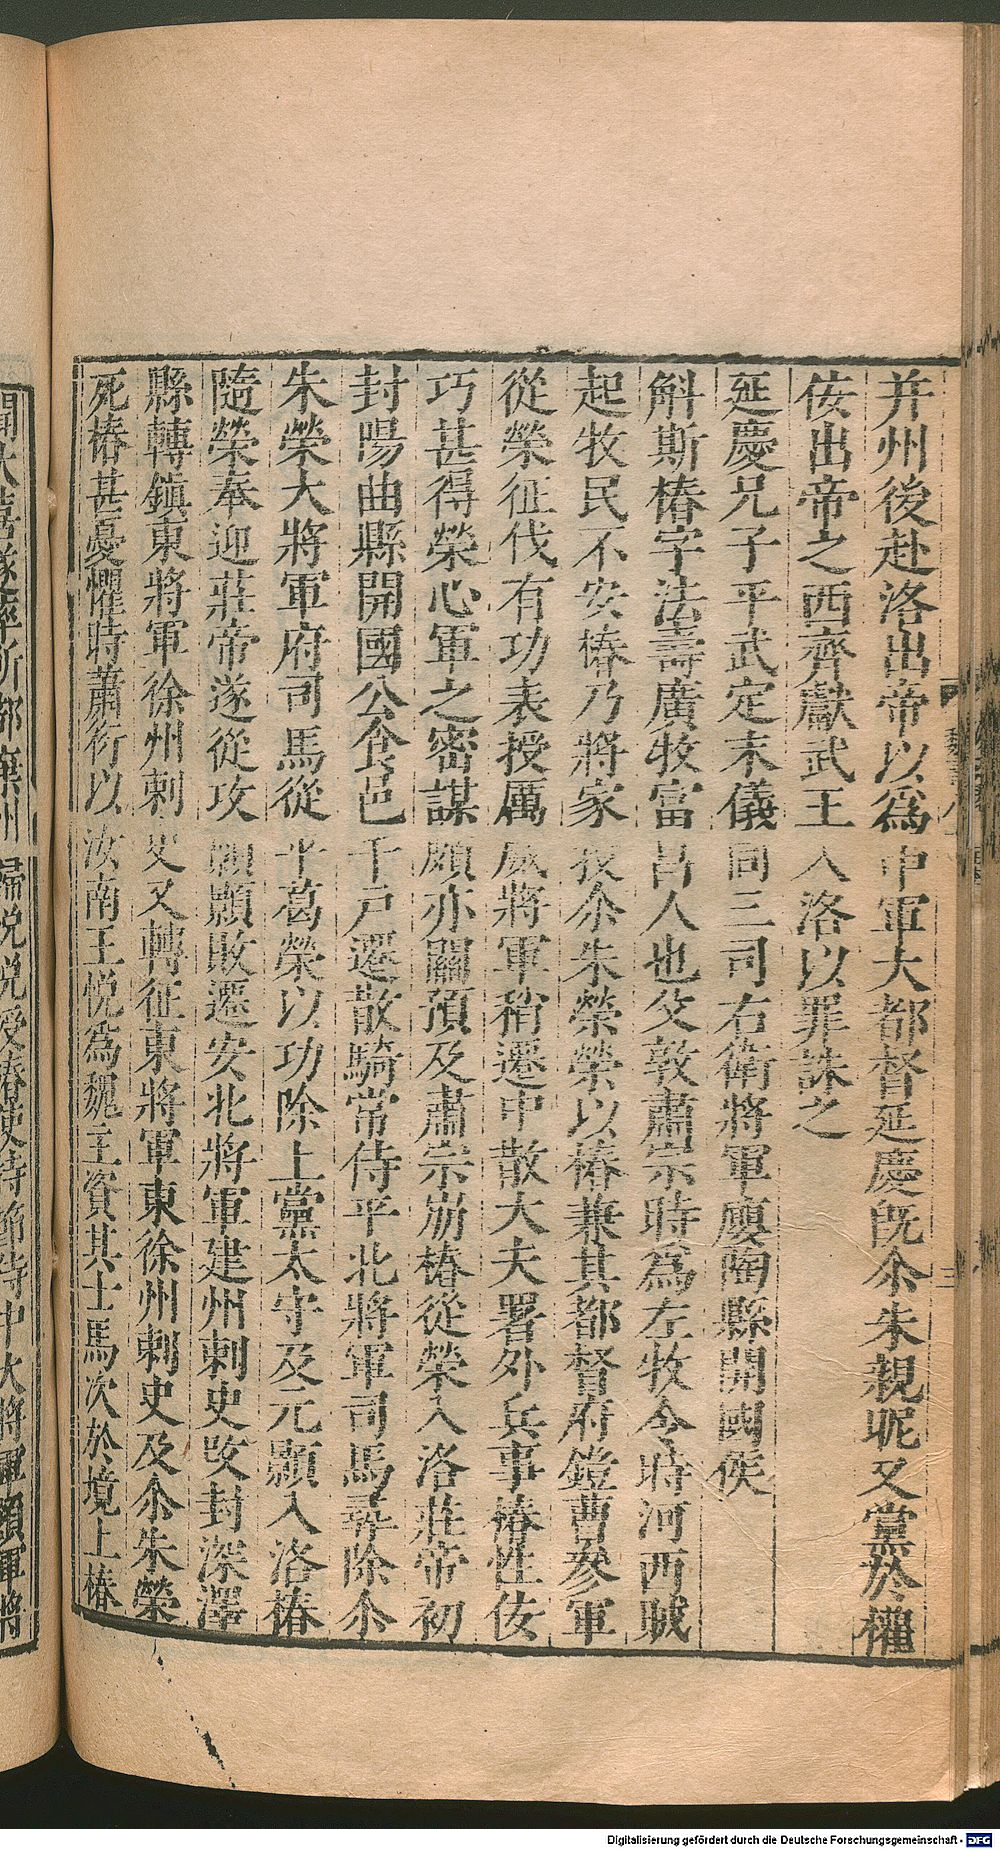 并州後赴洛出帝以爲中軍大都督延慶既尒朱親昵又黨於權
佞出帝之西齊獻武王入洛以罪誅之
延慶兄子平武定末儀同三司右衛將軍廮陶縣開國侯
斛斯椿字法壽廣牧富昌人也父敦肅宗時爲左牧令時河西賊
起牧民不安椿乃將家投尒朱榮榮以椿兼其都督府鎧曹參軍
從榮征伐有功表授厲威將軍稍遷中散大夫署外兵事椿性佞
巧甚得榮心軍之密謀頗亦關預及肅宗崩椿從榮入洛莊帝初
封陽曲縣開國公食邑千戶遷散騎常侍平北將軍司馬尋除尒
朱榮大將軍府司馬從平葛榮以功除上黨太守及元顥入洛椿
隨榮奉迎莊帝遂從攻顥顥敗遷安北將軍建州刺史改封深澤
縣轉鎮東將軍徐州刺史又轉征東將軍東徐州刺史及尒朱榮
死椿甚憂懼時蕭衍以汝南王悅爲魏主資其士馬次於境上椿
聞大喜遂率所部棄州歸悅悅受椿使持節侍中大將軍領軍將
Digitalisierung gefördert durch die Deutsche Forschungsgemeinschaft - DFG